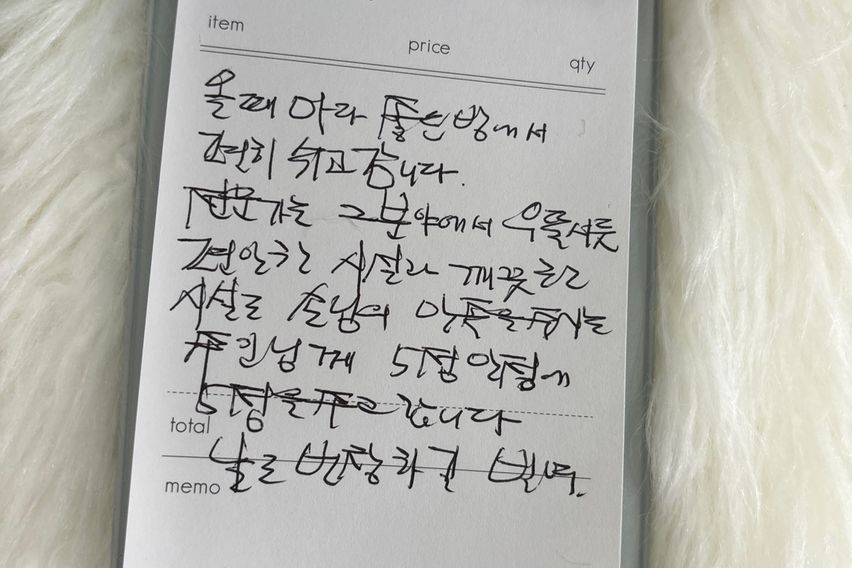 item price qty
올때 마라 좋은 방에서
편히 쉬고 갑니다.
전문가는 그 분야에서 우뚤서듯
편안한 시설과 깨끗한
시설로 손님의 만족을 주시는
주인님께 5점 만점에
5점을 주고 갑니다
total
날로 번창하길 빌며.
memo